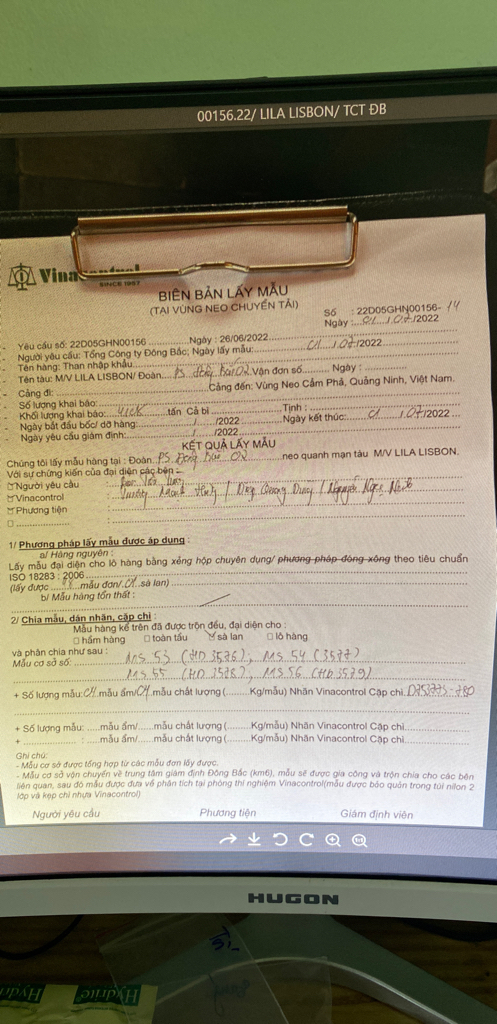 00156.22/ LILA LISBON/ TCT ĐB
Vinacontrol
SINCE 1957
BIÊN BẢN LẤY MẪU
(TẠI VÙNG NEO CHUYỂN TẢI)
Số : 22D05GHN00156- 14
Ngày : 01 / 07 /2022
- Yêu cầu số: 22D05GHN00156 Ngày : 26/06/2022
- Người yêu cầu: Tổng Công ty Đông Bắc; Ngày lấy mẫu: 01 / 07 /2022
- Tên hàng: Than nhập khẩu
- Tên tàu: M/V LILA LISBON/ Đoàn: PS Đông Bắc 02 Vận đơn số Ngày :
- Cảng đi: Cảng đến: Vùng Neo Cẩm Phả, Quảng Ninh, Việt Nam.
- Số lượng khai báo:
- Khối lượng khai báo: tấn Cả bì Tịnh :
- Ngày bắt đầu bốc/ dỡ hàng: / /2022 Ngày kết thúc: 01 / 07/2022
- Ngày yêu cầu giám định: / /2022
KẾT QUẢ LẤY MẪU
Chúng tôi lấy mẫu hàng tại : Đoàn PS Đông Bắc 02 neo quanh mạn tàu M/V LILA LISBON.
Với sự chứng kiến của đại diện các bên –
Người yêu cầu :
Vinacontrol : Mạnh / Quang / Nguyễn Ngọc
Phương tiện :
1/ Phương pháp lấy mẫu được áp dụng :
a/ Hàng nguyên :
Lấy mẫu đại diện cho lô hàng bằng xẻng hộp chuyên dụng/ phương pháp đóng xông theo tiêu chuẩn
ISO 18283 : 2006
(lấy được mẫu đơn/ 04 sà lan)
b/ Mẫu hàng tổn thất :
2/ Chia mẫu, dán nhãn, cặp chì :
Mẫu hàng kể trên đã được trộn đều, đại diện cho :
hầm hàng toàn tầu sà lan lô hàng
và phân chia như sau :
Mẫu cơ sở số: MS 53 (HD 3576) ; MS 54 (3577)
MS 55 (HD 3578) ; MS 56 (HD 3579)
+ Số lượng mẫu: 04 mẫu ẩm/ 04 mẫu chất lượng ( Kg/mẫu) Nhãn Vinacontrol Cặp chì
+ Số lượng mẫu: mẫu ẩm/ mẫu chất lượng ( Kg/mẫu) Nhãn Vinacontrol Cặp chì
+ : mẫu ẩm/ mẫu chất lượng ( Kg/mẫu) Nhãn Vinacontrol Cặp chì
Ghi chú:
- Mẫu cơ sở được tổng hợp từ các mẫu đơn lấy được.
- Mẫu cơ sở vận chuyển về trung tâm giám định Đông Bắc (km6), mẫu sẽ được gia công và trộn chia cho các bên
liên quan, sau đó mẫu được đưa về phân tích tại phòng thí nghiệm Vinacontrol(mẫu được bảo quản trong túi nilon 2
lớp và kẹp chì nhựa Vinacontrol)
Người yêu cầu Phương tiện Giám định viên
1:1
HUGON
Hydrite Hydrite